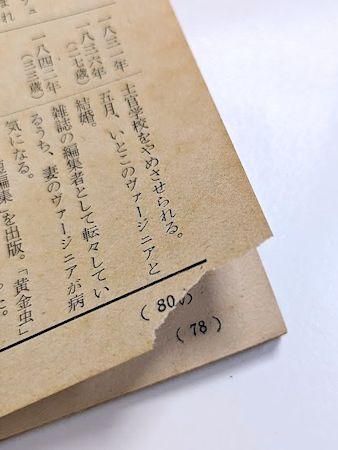 一八三一年
士官学校をやめさせられる。
一八三六年
五月、いとこのヴァージニアと
（二七歳）
結婚。
一八四二年
雑誌の編集者として転々してい
（三三歳）
るうち、妻のヴァージニアが病
気になる。
編集』を出版。「黄金虫」
まれ
（80
（78）